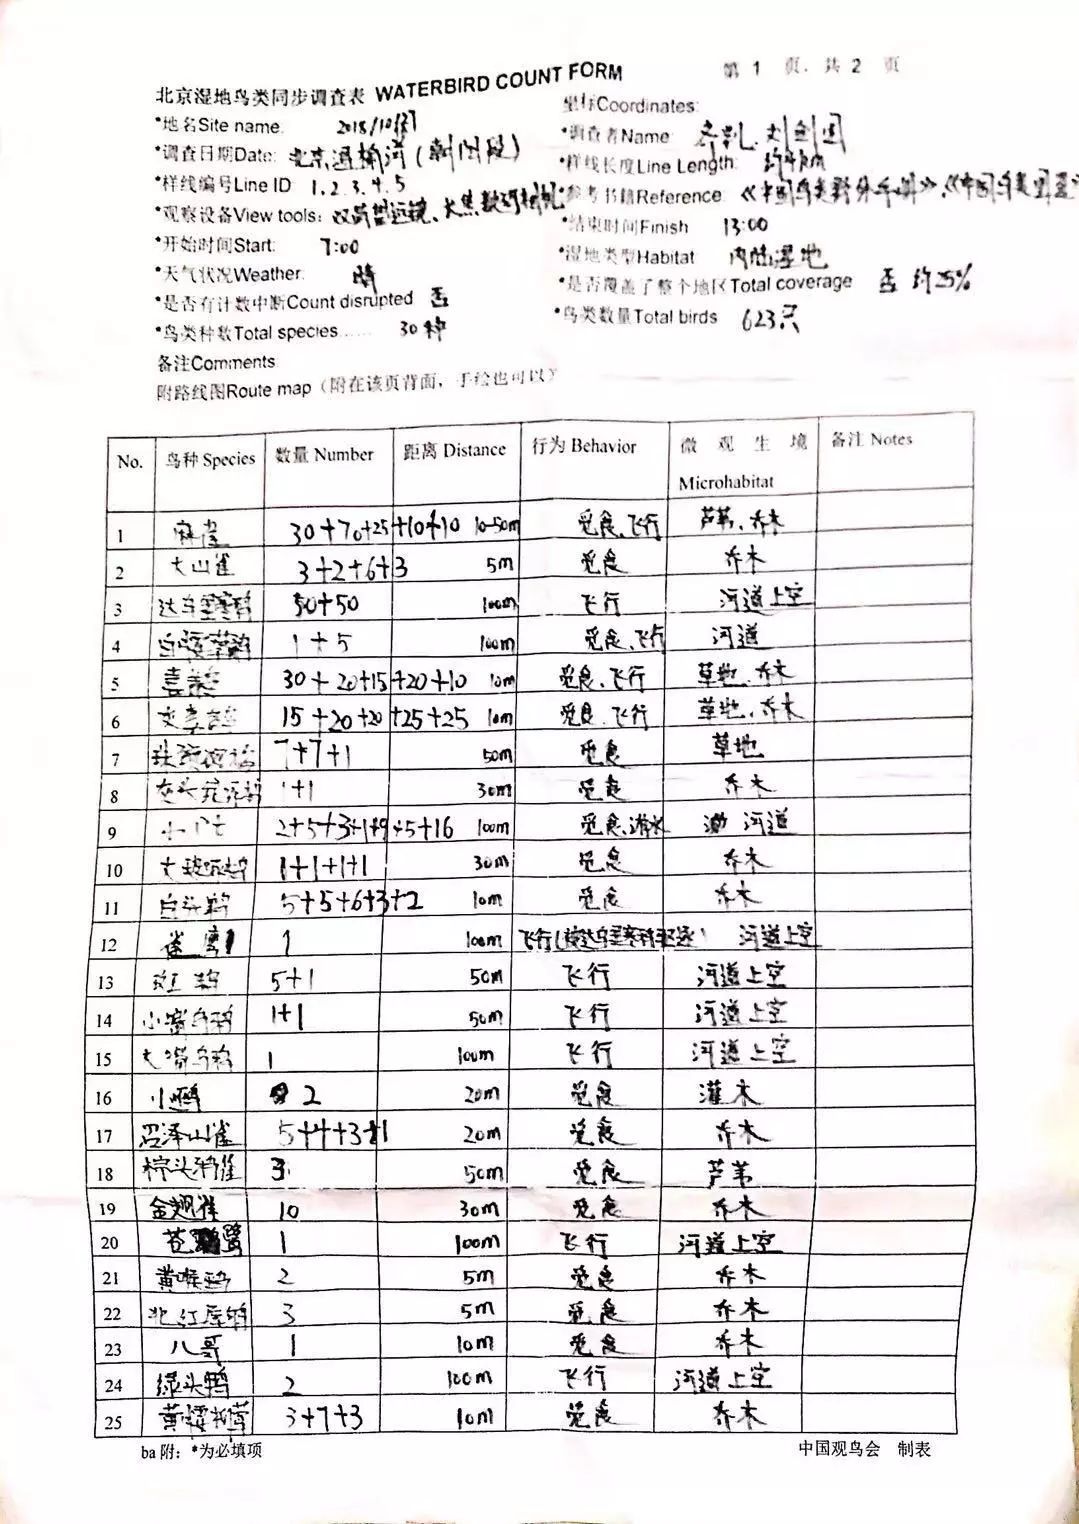 第 1 页,共 2 页
北京湿地鸟类同步调查表 WATERBIRD COUNT FORM
坐标Coordinates:
*地名Site name: 2018/10
*调查者Name: 齐
*调查日期Date: 北京温榆河(朝阳段)
*样线长度Line Length: 约4km
*样线编号Line ID 1、2、3、4、5
*参考书籍Reference 《中国鸟类野外手册》、《中国鸟类图鉴》
*观察设备View tools: 双筒望远镜、长焦数码相机
*结束时间Finish 13:00
*开始时间Start: 7:00
*湿地类型Habitat 内陆湿地
*天气状况Weather: 晴
*是否覆盖了整个地区Total coverage 否 约25%
*是否有计数中断Count disrupted 否
*鸟类数量Total birds 623只
*鸟类种数Total species…… 30种
备注Comments
附路线图Route map(附在该页背面,手绘也可以)
No. 鸟种 Species 数量 Number 距离 Distance 行为 Behavior 微观生境 Microhabitat 备注 Notes
1 麻雀 30+70+25+10+10 10-50m 觅食、飞行 芦苇、乔木
2 大山雀 3+2+6+3 5m 觅食 乔木
3 达乌里寒鸦 50+50 100m 飞行 河道上空
4 1+5 100m 觅食、飞行 河道
5 喜鹊 30+20+15+20+10 10m 觅食、飞行 草地、乔木
6 灰喜鹊 15+20+20+25+25 10m 觅食、飞行 草地、乔木
7 珠颈斑鸠 7+7+1 50m 觅食 草地
8 灰头绿啄木鸟 1+1 30m 觅食 乔木
9 2+5+3+1+9+5+16 100m 觅食、游水 河道
10 大斑啄木鸟 1+1+1+1 30m 觅食 乔木
11 白头鹎 5+5+6+3+2 10m 觅食 乔木
12 雀鹰 1 100m 飞行(被达乌里寒鸦驱逐) 河道上空
13 斑鸫 5+1 50m 飞行 河道上空
14 小嘴乌鸦 1+1 50m 飞行 河道上空
15 大嘴乌鸦 1 100m 飞行 河道上空
16 小鹀 2 20m 觅食 灌木
17 沼泽山雀 5+4+3+1 20m 觅食 乔木
18 棕头鸦雀 3 50m 觅食 芦苇
19 金翅雀 10 30m 觅食 乔木
20 苍鹭 1 100m 飞行 河道上空
21 黄喉鹀 2 5m 觅食 乔木
22 北红尾鸲 3 5m 觅食 乔木
23 八哥 1 10m 觅食 乔木
24 绿头鸭 2 100m 飞行 河道上空
25 黄腰柳莺 3+7+3 10m 觅食 乔木
ba 附:*为必填项
中国观鸟会 制表